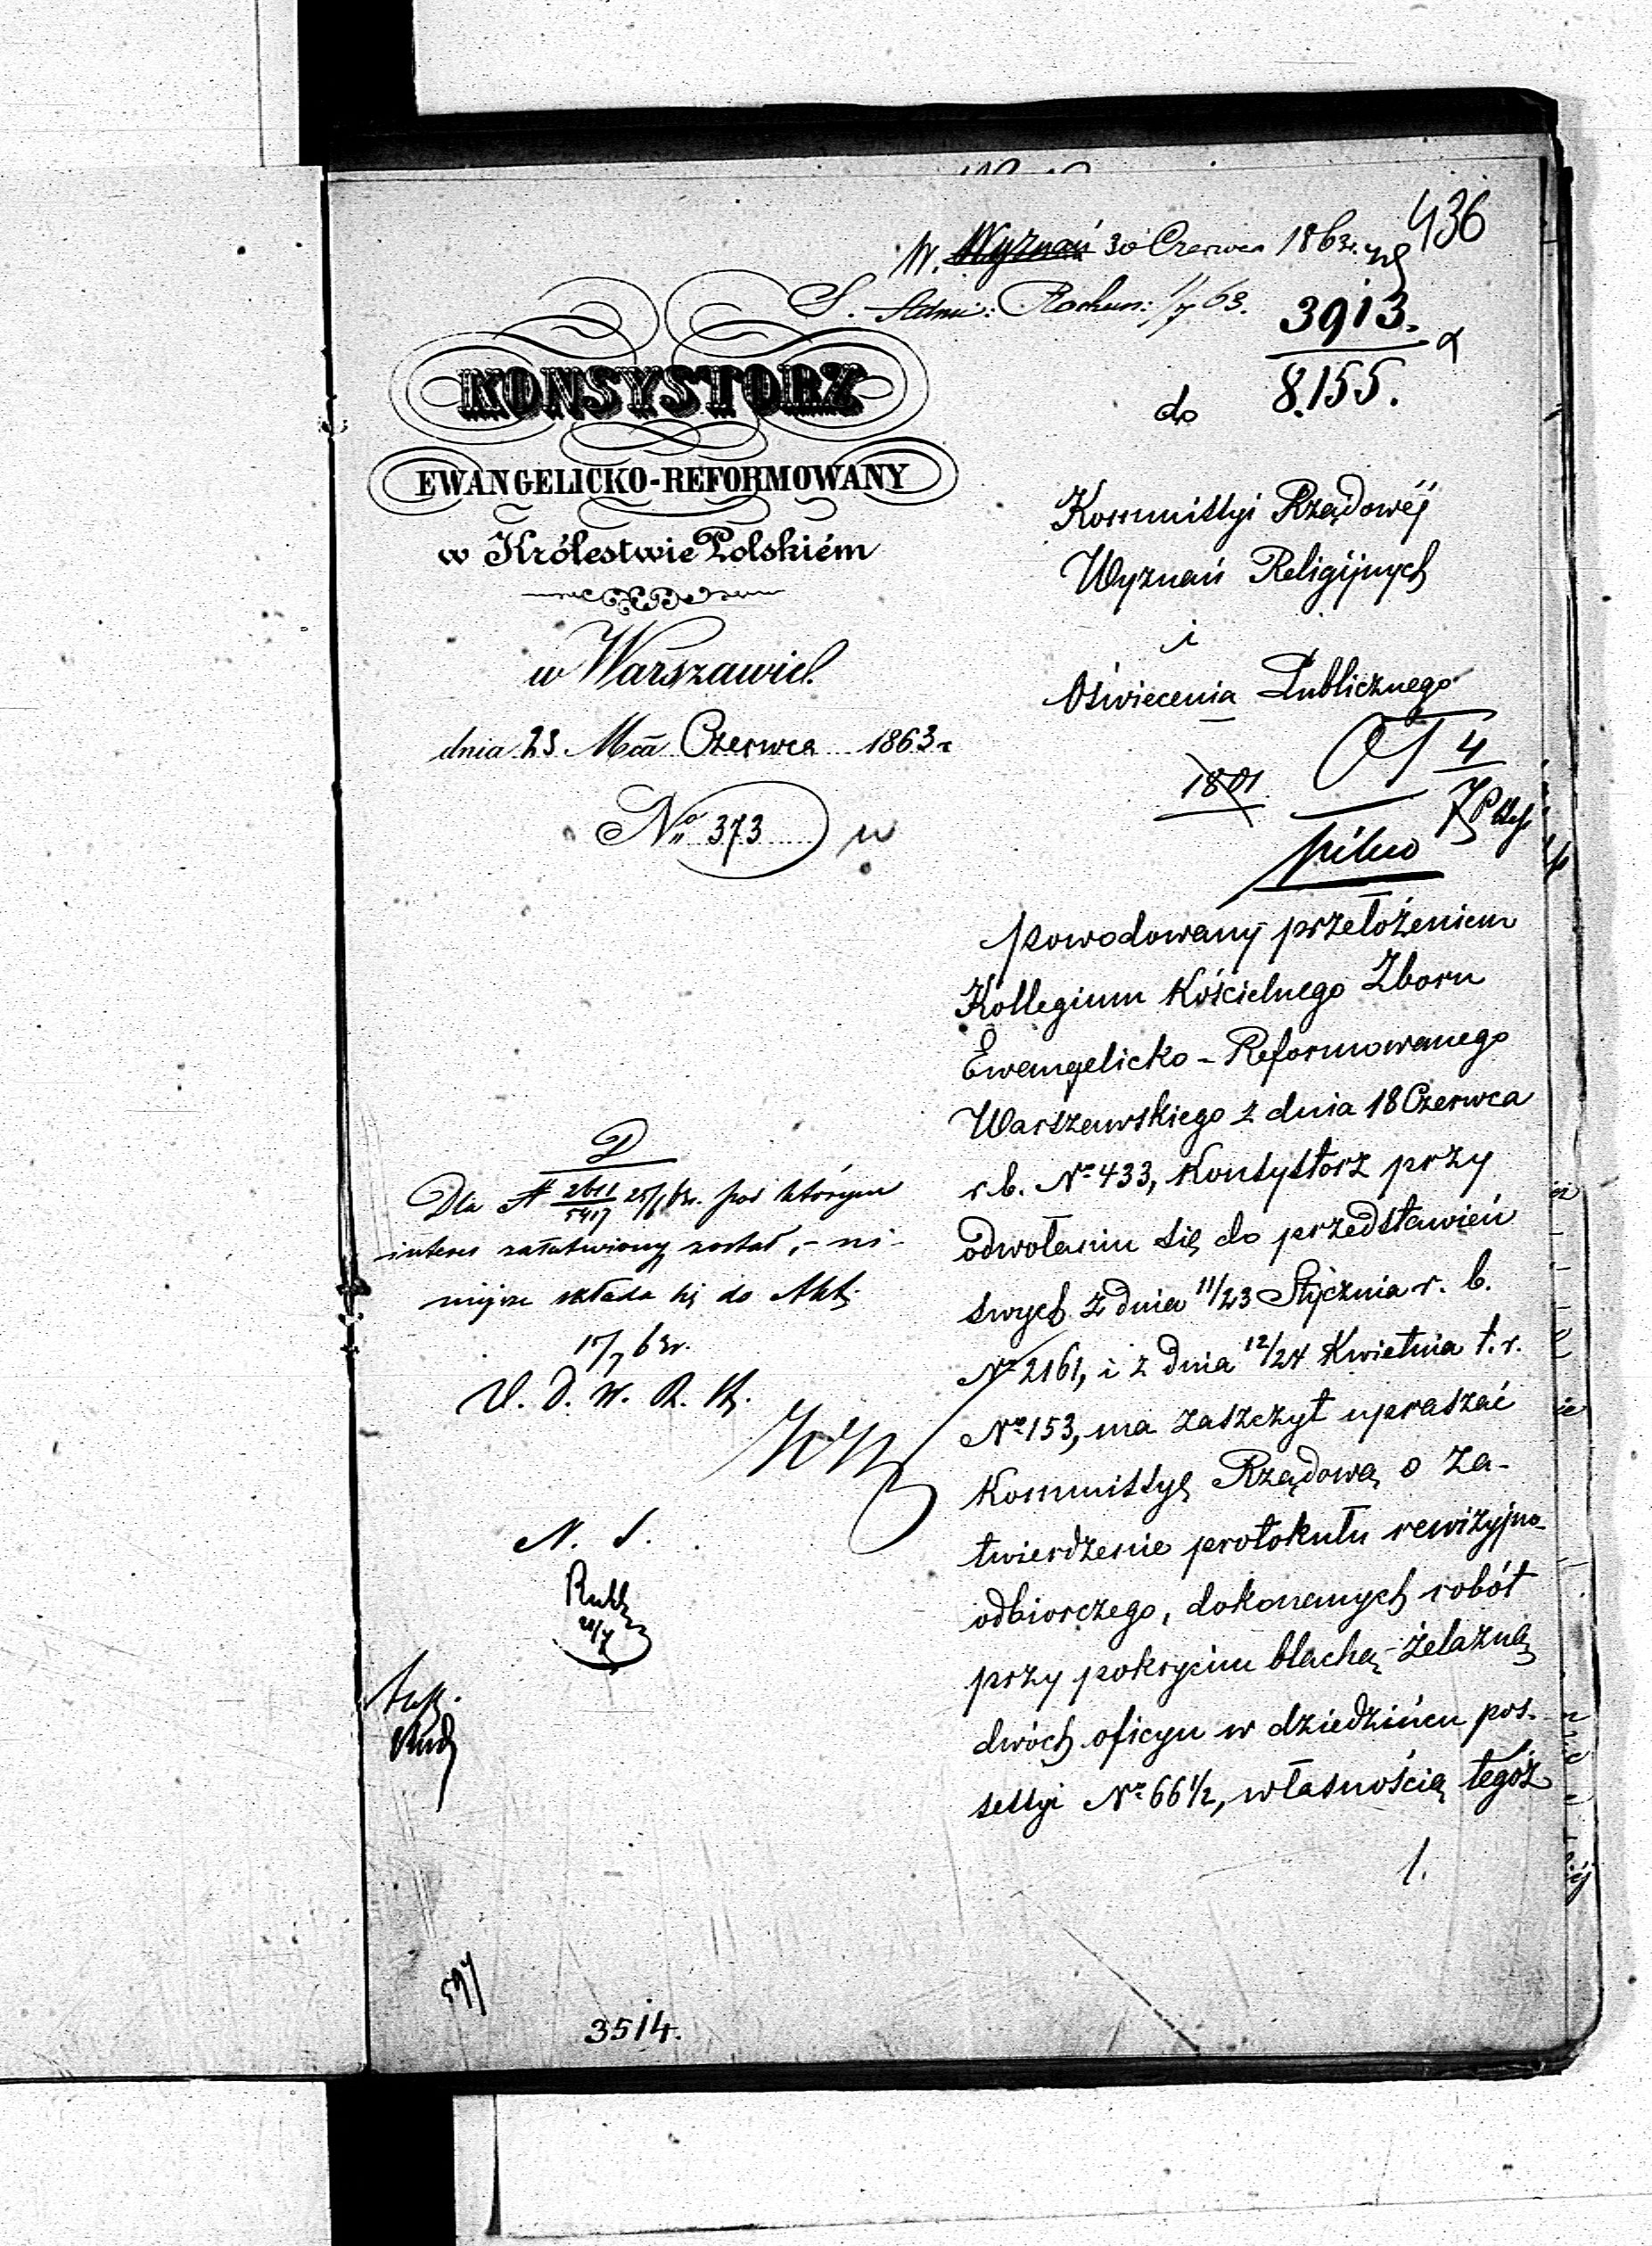 436
W. Wyznań 30 Czerwca 1863 r.
S. Rachun: 1/7 63.
3913.
8.155.
KONSYSTORZ
EWANGELICKO-REFORMOWANY
w Królestwie Polskiém
w Warszawie.
dnia 23 Mca Czerwca 1863 r
No 373
do
Kommissyi Rządowéj
Wyznań Religijnych
i
Oświecenia Publicznego
1801
pilno
Powodowany przełożeniem
Kollegium Kościelnego Zboru
Ewangelicko-Reformowanego
Warszawskiego z dnia 18 Czerwca
r. b. No 433, Konsystorz przy
odwołaniu się do przedstawień
swych z dnia 11/23 Stycznia r. b.
No 2161, i z dnia 12/24 Kwietnia t. r.
No 153, ma zaszczyt upraszać
Kommissyę Rządową o za-
twierdzenie protokułu rewizyjno-
odbiorczego, dokonanych robót
przy pokryciu blachą żelazną
dwóch oficyn w dziedzińcu pos-
sessyi No 66 1/2, własnością tegoż
1.
D
Dla № 2611/5417 25/6 63r. pod którym
interes załatwiony został, – ni-
niejsze składa się do Akt.
15/7 63r.
N. S.
3514.